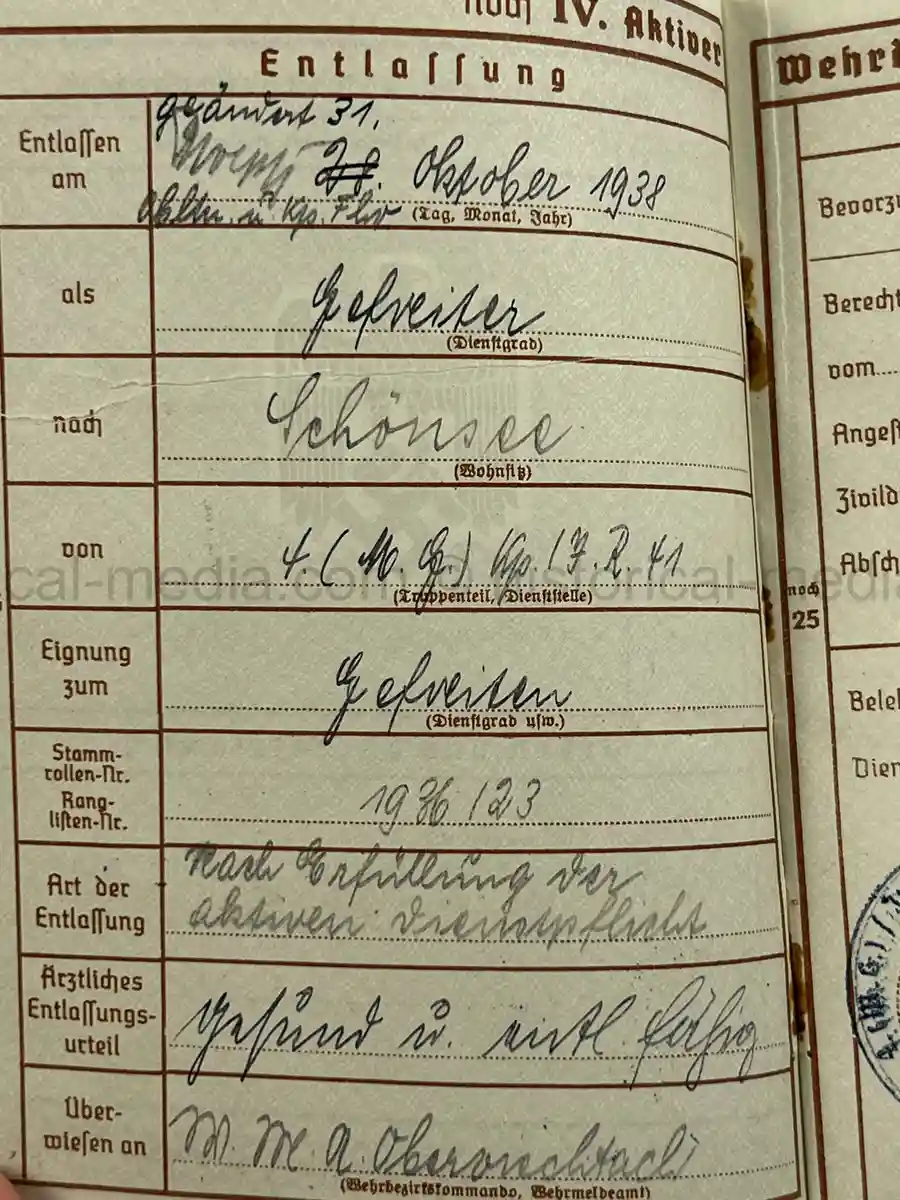 noch IV. Aktiver
Entlassung
Entlassen am
geändert 31.
28. Oktober 1938
Obltn. u. Kp. Fhr
(Tag, Monat, Jahr)
als
Gefreiter
(Dienstgrad)
nach
Schönsee
(Wohnsitz)
von
4. (M. G.) Kp. / J. R. 41
(Truppenteil, Dienststelle)
Eignung zum
Gefreiten
(Dienstgrad usw.)
Stamm-
rollen-Nr.
Rang-
listen-Nr.
1936/23
Art der
Entlassung
Nach Erfüllung der
aktiven Dienstpflicht
Ärztliches
Entlassungs-
urteil
gesund u. entl. fähig
Über-
wiesen an
W. M. A. Oberviechtach
(Wehrbezirkskommando, Wehrmeldeamt)
Bevorzu
Berecht
vom....
Angest
Zivild
Absch
noch
25
Belel
Dien